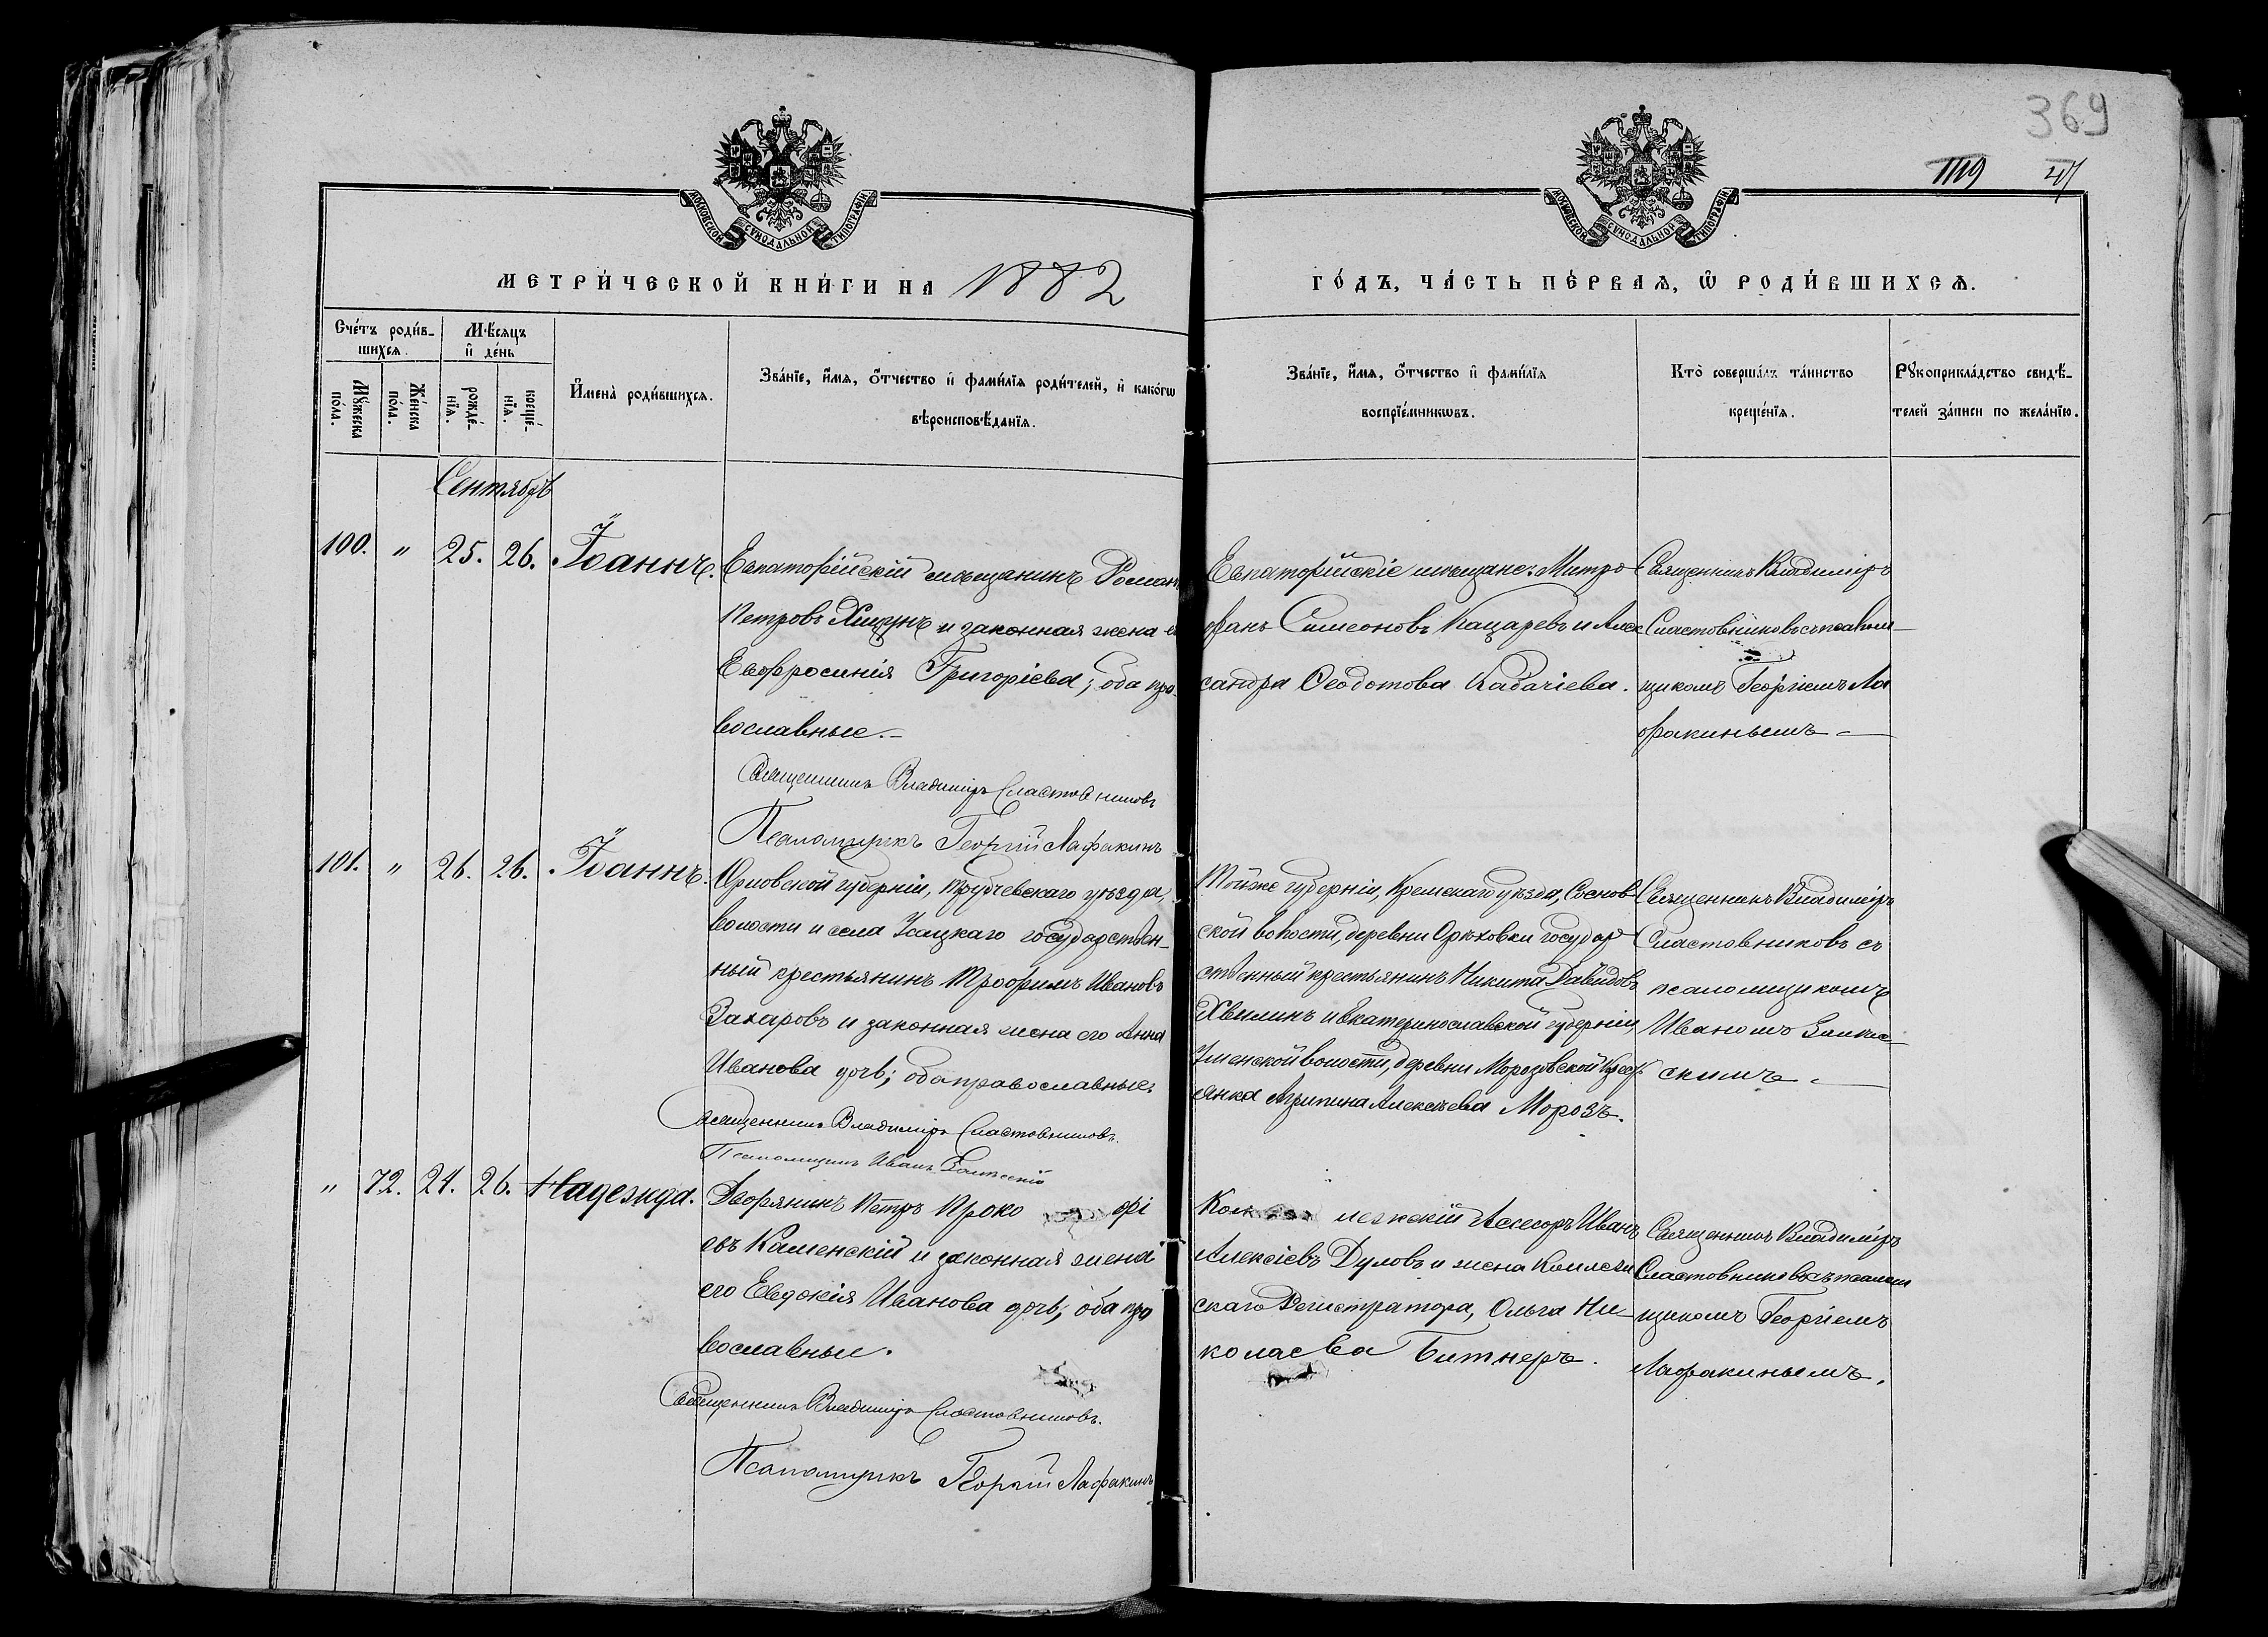 369
МОСКОВСКОЙ СѴНОДАЛЬНОЙ ТИПОГРАФІИ
МОСКОВСКОЙ СѴНОДАЛЬНОЙ ТИПОГРАФІИ
МЕТРИ́ЧЕСКОЙ КНИ́ГИ НА 1882
ГО́ДЪ, ЧА́СТЬ ПЕ́РВАѦ, Ѽ РОДИ́ВШИХСѦ.
Сче́тъ роди́в-
шихсѧ.
Мѣ́сѧцъ
и҆ де́нь
Мꙋ́жеска
по́ла.
Же́нска
по́ла.
рожде́-
нїѧ.
креще́-
нїѧ.
И҆мена̀ роди́вшихсѧ.
Зва́нїе, и҆́мѧ, ѻ҆́тчество и҆ фами́лїѧ роди́телей, и҆ како́гѡ
вѣроисповѣ́данїѧ.
Зва́нїе, и҆́мѧ, ѻ҆́тчество и҆ фами́лїѧ
воспрїе́мникѡвъ.
Кто̀ соверша́лъ та́инство
креще́нїѧ.
Рꙋкоприкла́дство свидѣ́-
телей за́писи по жела́нїю.
Сентябрь
100. " 25. 26. Іоаннъ.
Евпаторійскій мѣщанинъ Роман
Петровъ и законная жена е
Евфросинія Григоріева; оба пра-
вославные.-
Священникъ Владиміръ Сластовниковъ
Псаломщикъ Георгій Лафакинъ
Евпаторійскіе мѣщане: Митро-
фанъ Симеоновъ Кацаревъ и Алек
сандра Ѳеодотова Кадачіева.
Священникъ Владиміръ
Сластовниковъ съ псалом-
щикомъ Георгіемъ Ла
факинымъ -
101. " 26. 26. Іоаннъ.
Орловской губерніи, Трубчевскаго уѣзда,
волости и села Усацкаго государствен-
ный крестьянинъ Трофимъ Ивановъ
Захаровъ и законная жена его Анна
Иванова дочь; оба православные.
Священникъ Владиміръ Сластовниковъ.
Псаломщикъ Иванъ
Тойже губерніи, Кромскаго уѣзда, Соснов-
ской волости, деревни Орѣховки государ
ственный крестьянинъ Никита Давидовъ
Хвилинъ и Екатеринославской губерніи,
волости, деревни Морозовской крест
янка Агрипина Алексѣева Морозъ.
Священникъ Владиміръ
Сластовниковъ съ
псаломщикомъ
Иваномъ
скимъ -
" 72. 21. 26. Надежда.
Дворянинъ Петръ Проко фі
евъ Каменскій и законная жена
его Евдокія Иванова дочь; оба пра
вославные.
Священникъ Владиміръ Сластовниковъ.
Псаломщикъ Георгій Лафакинъ
Кол лежскій Асесоръ Иванъ
Алексіевъ Дуловъ и жена Коллежи
скаго Регистратора, Ольга Ни-
колаева Битнеръ.
Священникъ Владиміръ
Сластовниковъ съ псалом
щикомъ Георгіемъ
Лафакинымъ.